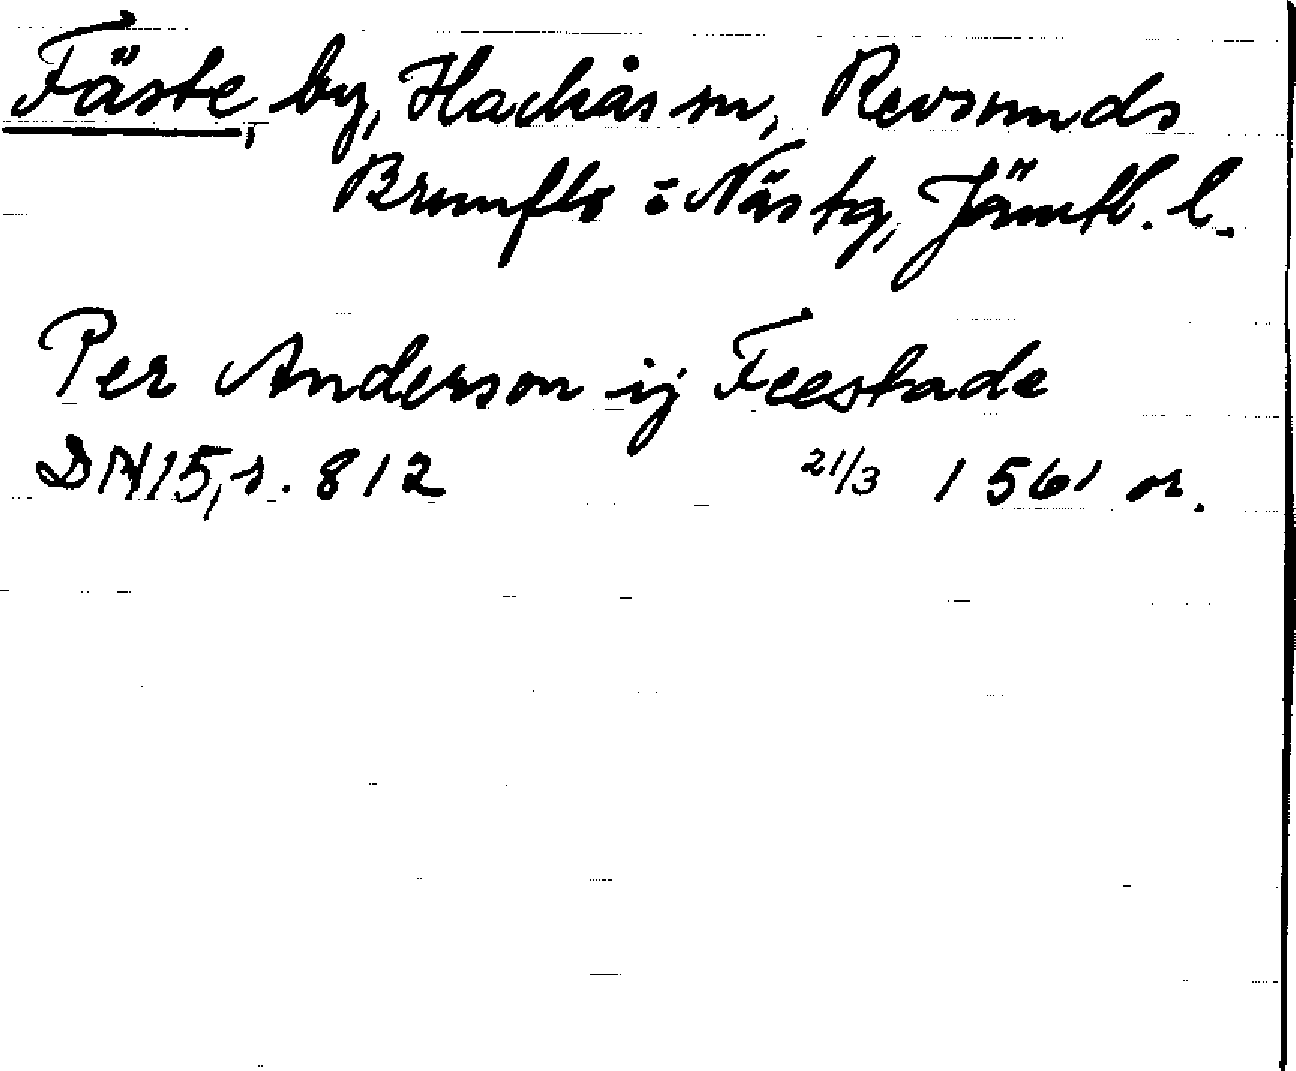 Fäste, by, Hackås sn, Revsunds
Brunflo o Näs tg, Jämtl. l.
Per Anderson ij Feestade
DN 15, s. 812 21/3 1561 or.